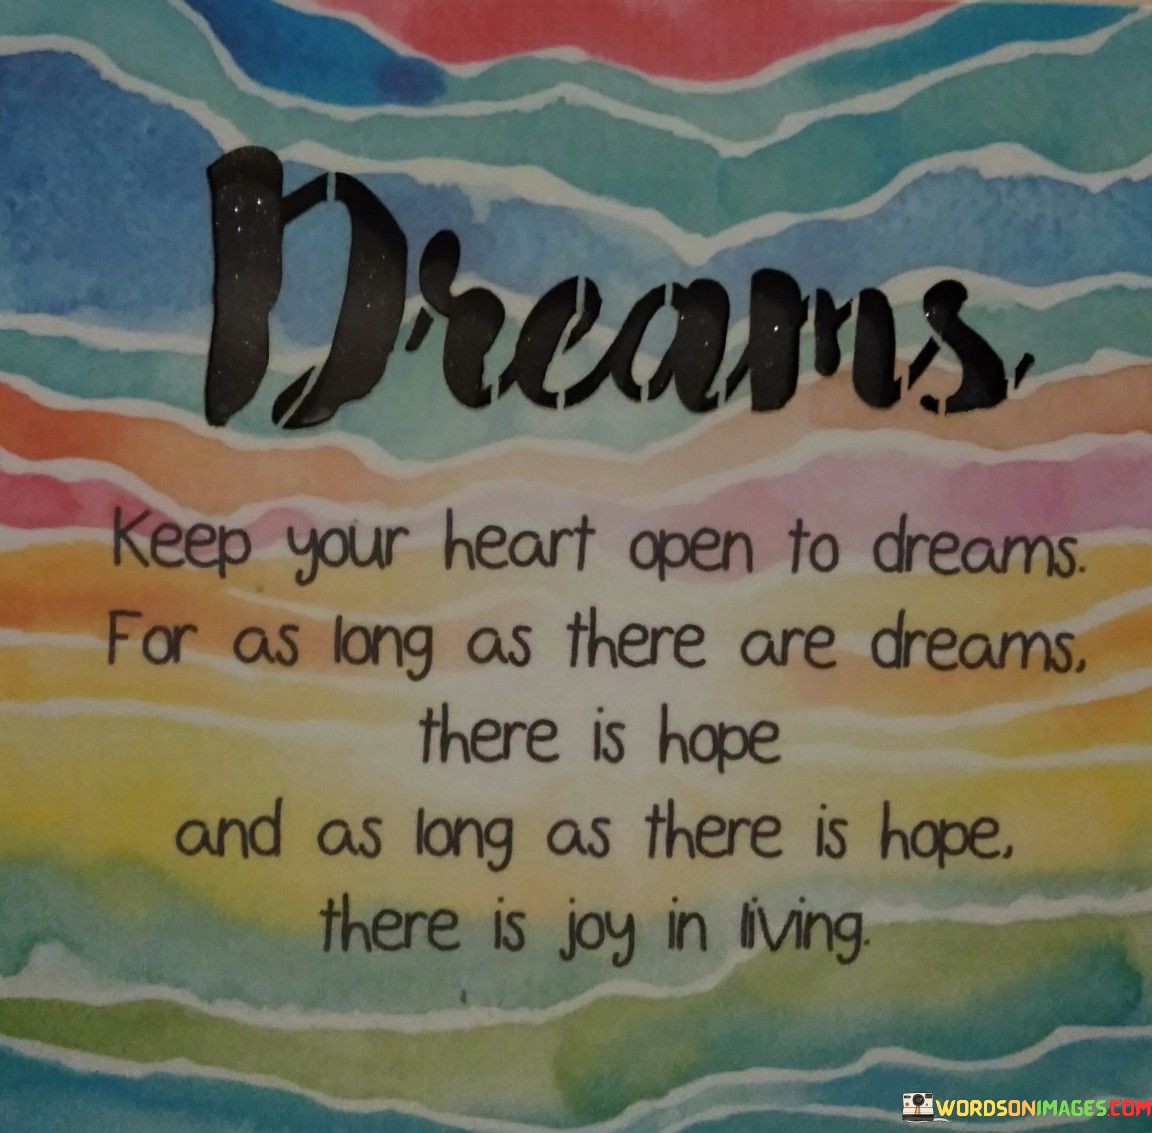 Dreams
Keep your heart open to dreams.
For as long as there are dreams,
there is hope
and as long as there is hope,
there is joy in living.
WORDSONIMAGES.COM